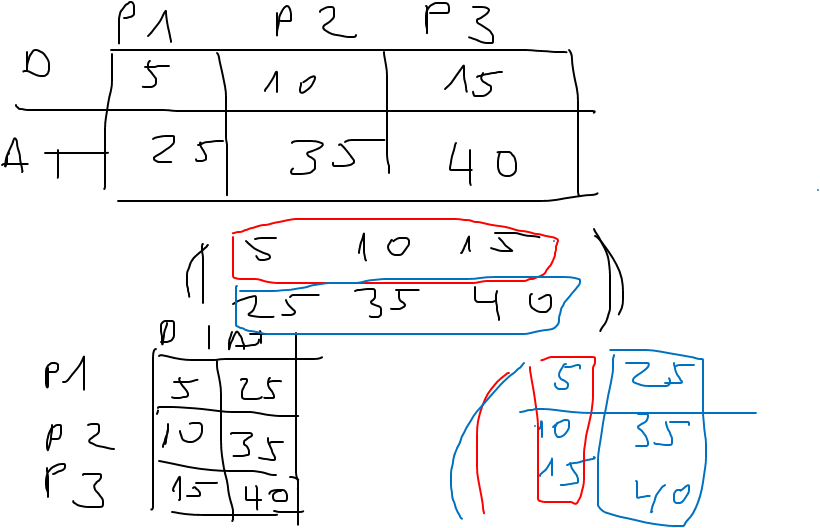 P1 P2 P3
D 5 10 15
A 25 35 40
( 5 10 15 )
25 35 40
D
P1 5 25
P2 10 35
P3 15 40
( 5 25
10 35
15 40